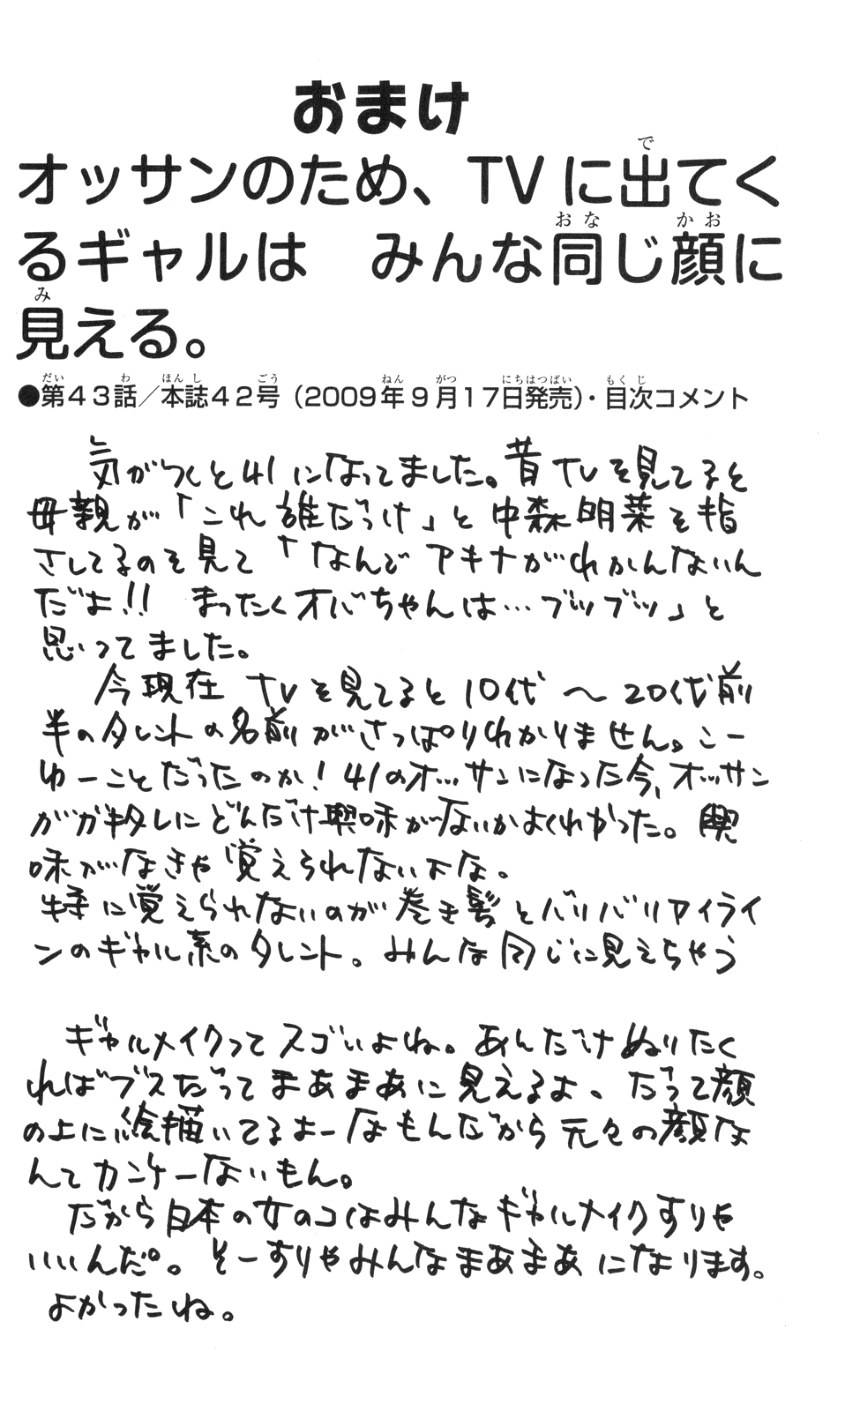 おまけ
オッサンのため、TVに出てく
るギャルは　みんな同じ顔に
見える。
●第43話／本誌42号（2009年9月17日発売）・目次コメント
気がつくと41になってました。昔TVを見てると
母親が「これ誰だっけ」と中森明菜を指
さしてるのを見て「なんでアキナがわかんないん
だよ!!　まったくオバちゃんは…ブツブツ」と
思ってました。
今現在TVを見てると10代～20代前
半のタレントの名前がさっぱりわかりません。こー
ゆーことだったのか！41のオッサンになった今、オッサン
がガキタレにどんだけ興味がないかよくわかった。興
味がなきゃ覚えられないよな。
特に覚えられないのが巻き髪とバリバリアイライ
ンのギャル系のタレント。みんな同じに見えちゃう
ギャルメイクってスゴいよね。あんだけぬりたく
ればブスだってまあまあに見えるよ、だって顔
の上に絵描いてるよーなもんだから元々の顔な
んてカンケーないもん。
だから日本の女のコはみんなギャルメイクすりゃ
いいんだ。そーすりゃみんなまあまあになります。
よかったね。